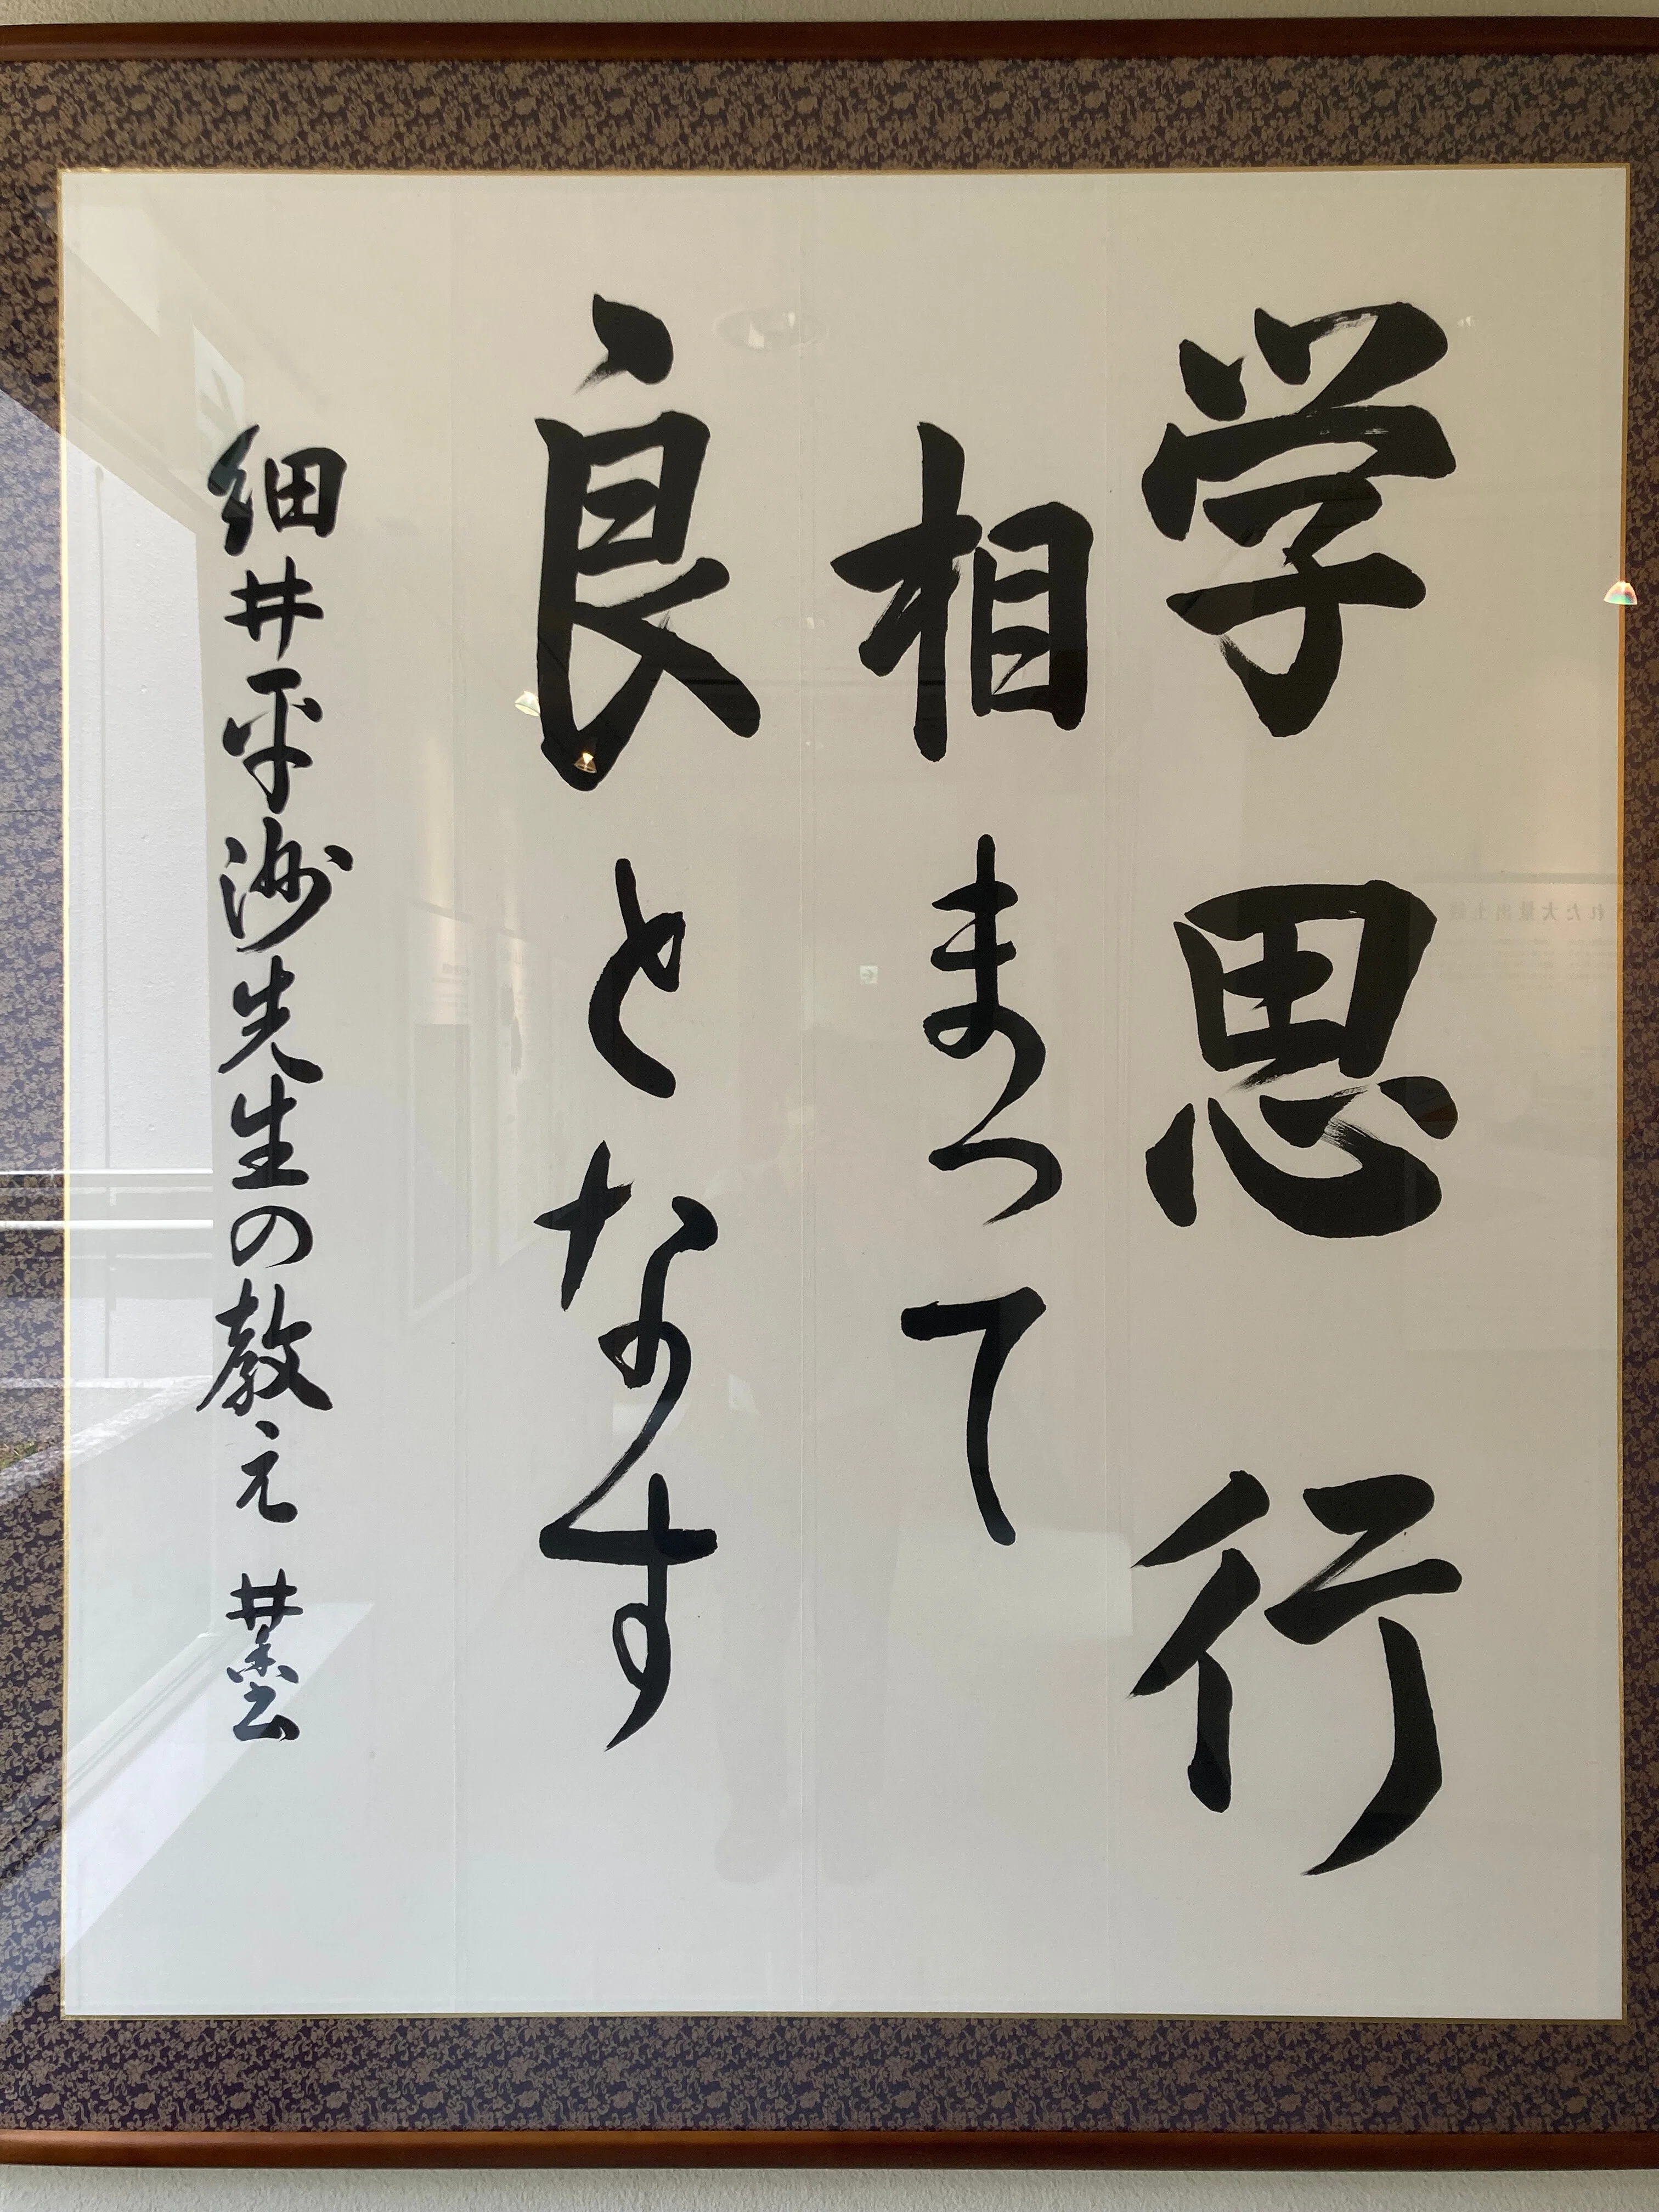 学思行
相まって
良となす
細井平洲先生の教え